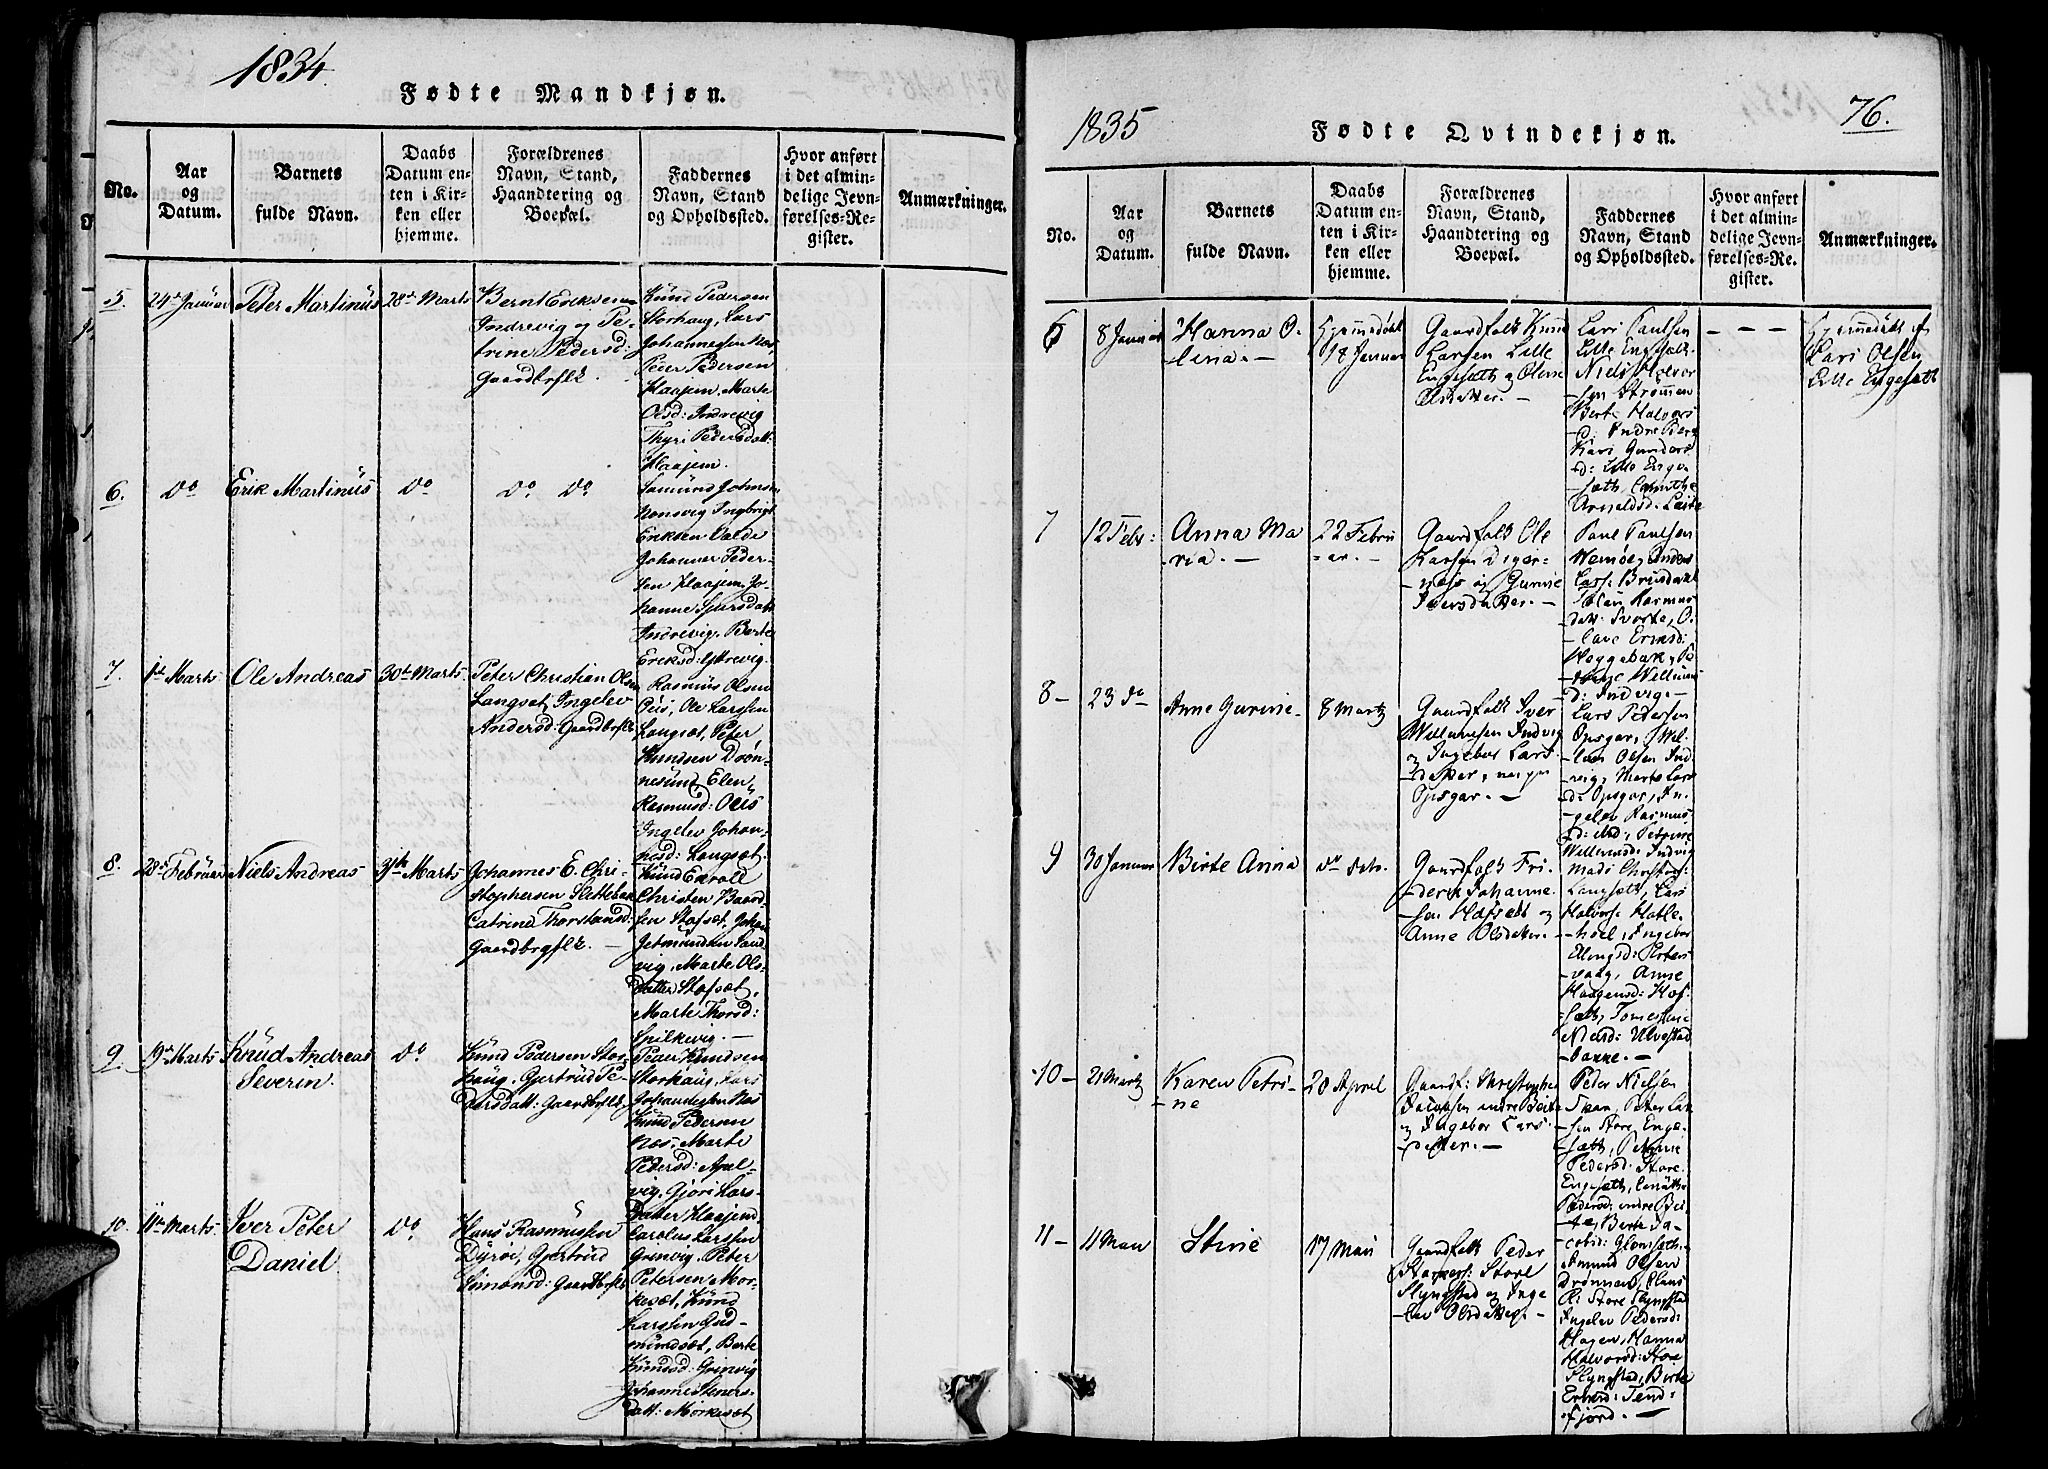 1834.
Fødte Mandkjøn.
No.
Aar
og
Datum.
Barnets
fulde Navn.
Daabs
Datum en-
ten i Kir-
ken eller
hjemme.
Forældrenes
Navn, Stand,
Haandtering og
Boepæl.
Faddernes
Navn, Stand
og Opholdssted.
Hvor anført
i det almin-
delige Jevn-
førelses-Re-
gister.
Anmærkninger.
5.
24de Januar
Peter Martinus
28de Marts
Bernt Eriksen
Indrevig og Pe-
trine Pedersd:
Gaardbrflk.
Knud Pedersen
Storhaug, Lars
Johannesen Næs,
Peder Pedersen
Haajem, Marte
Olsd: Indrevig
Thyri Pedersdatt:
Haajem.
6.
do
Erik Martinus
do
do do
Samund Johns
Nonsvig Ingbrigt
Eriksen Valde
Johannes Peder-
sen Haajem, Jo-
hanne Sjursdatt
Indrevig. Berte
Eriksd: Yttrevig.
7.
1ste Marts
Ole Andreas
30te Marts
Peter Christian Olsen
Langset, Ingelev
Andersd: Gaardbrflk
Rasmus Olsen
Ole Larssen
Langsæt, Peter
Knudsen Drøn-
nesund, Elen
Rasmusd:
Ingelev Johan-
nesd: Langsæt.
8.
28de Februar
Niels Andreas
31te Marts
Johannes E. Chri-
stophersen Slettebak
Catrine Thorstensd:
Gaardbrgflk.
Knud
Christen Baard-
sen Stafset, Johan
Jetmundsen Sand-
vig, Marte Ols-
datter Stafset,
Marte Thorsd:
Spilkevig.
9.
9de Marts
Knud Andreas
Severin.
do
Knud Pedersen Stor-
haug, Gjertrud Pe-
dersdatt: Gaardbrflk.
Peder Knudsen
Storhaug, Lars
Johannesen Næs
Knud Pedersen
Næs, Marte
Pedersd: Apel-
vig, Gjøri Lars-
datter Haajem,
10.
11te Marts.
Iver Peter
Daniel
do
Hans Rasmussen
Dyrøe, Gjertrud
Simonsd: Gaardbrflk
Carolus Larssen
Grinvig. Peter
Petersen Mor-
kesæt, Knud
Larssen Gud-
mundsæt, Berte
Knudsd: Grinvig
Johanne Steners-
datt: Morkesæt
1835
Fødte Qvindekjøn.
76.
No.
Aar
og
Datum.
Barnets
fulde Navn.
Daabs
Datum en-
ten i Kir-
ken eller
hjemme.
Forældrenes
Navn, Stand,
Haandtering og
Boepæl.
Faddernes
Navn, Stand
og Opholdssted.
Hvor anført
i det almin-
delige Jevn-
førelses-Re-
gister.
Anmærkninger.
6
8 Januar
Hanna O-
lina. -
Hjemmedøbt
18 Januar
Gaardfolk Knud
Larsen Lille
Engesæth og Oline
Olsdatter. -
Lars Paulsen
Lille Engesæth.
Niels Halvor
sen Strømmen
Berte Halvors
d: Indre Berg
Kari Gunders
d: Lille Enge-
sæth,
Arnoldsd: Leite
- - -
Hjemmedøbt af
Lars Olsen
Lille Engesæth
7
12 Febr:
Anna Ma
ria. -
22 Febru
ar. -
Gaardfolk Ole
Larsen Diger-
næs og Gurine
Iversdatter. -
Paul Paulsen
Hemøe, Anders
Lars: Brusdahl
Rasmus
datt: Svorte, O-
lave
Hoggebak, Pe-
Willums
d: Indvig. -
8 -
23 do
Anne Gurine -
8 Marts
Gaardfolk Iver
Willumsen Indvig
og Ingebor Lars
datter,
Opsgar. -
Lars Petersen
Opsgar, Wil-
lum Olsen Ind
vig, Marte Lars
d: Opsgar, In-
gelev Rasmus
d: ibd, Petrine
Willumsd: Indvig
9
30 Januar
Birte Anna
do dito.
Gaardfolk Fri-
derik Johanne-
sen Hofseth og
Anne Olsdatter. -
Mads Christens:
Langsæth, Lars
Halvors: Hatle-
hoel, Ingebor
Elingsd:
vaag, Anne
Haagensd: Hof-
sæth, Tomesine
Nielsd: Ulvestad
bakke. -
10 -
21 Marts
Karen Petri-
ne
20 April
Gaardf: Christopher
Jacobsen indre Beite
og Ingebor Lars-
datter. -
Peder Nielsen
Skaar, Peter Lar
sen Store Enge-
sæth, Petrine
Pedersd. Store
Engesæth,
Pedersd: indre Bei-
te, Berte Ja-
cobsd: Glomsæth.
11 -
11 Mai
Stine
17 Mai
Gaardfolk Peder
Store
Slyngstad og Inge
lev Olsdatter. -
Amund Olsen
Drønnæs, Claus
Ol: Store Slyngstad
Ingelev Pedersd:
Hagen, Hanna
Halvorsd: Store
Slyngstad, Birte
Tend-
fjord. -